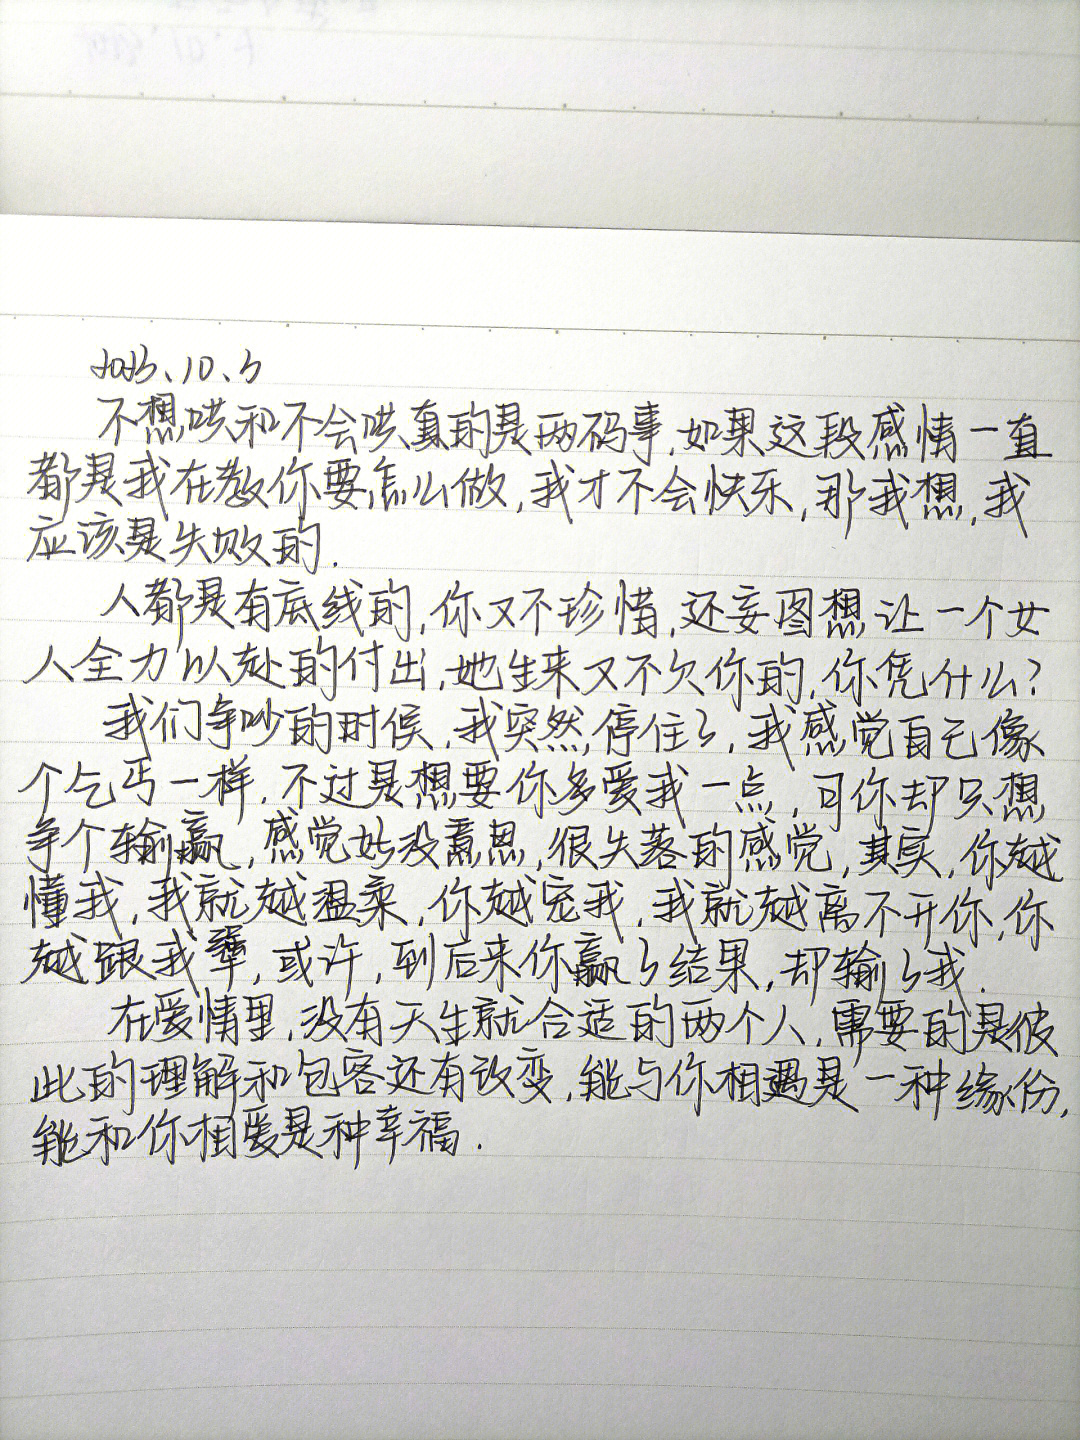 2023、10、3
不想哄和不会哄真的是两码事,如果这段感情一直
都是我在教你要怎么做,我才不会快乐,那我想,我
应该是失败的.
人都是有底线的,你又不珍惜,还妄图想让一个女
人全力以赴的付出,她生来又不欠你的,你凭什么?
我们争吵的时候,我突然停住了,我感觉自己像
个乞丐一样,不过是想要你多爱我一点,可你却只想
争个输赢,感觉好没意思,很失落的感觉,其实,你越
懂我,我就越温柔,你越宠我,我就越离不开你,你
越跟我犟,或许,到后来你赢了结果,却输了我.
在爱情里,没有天生就合适的两个人,需要的是彼
此的理解和包容还有改变,能与你相遇是一种缘份,
能和你相爱是种幸福.